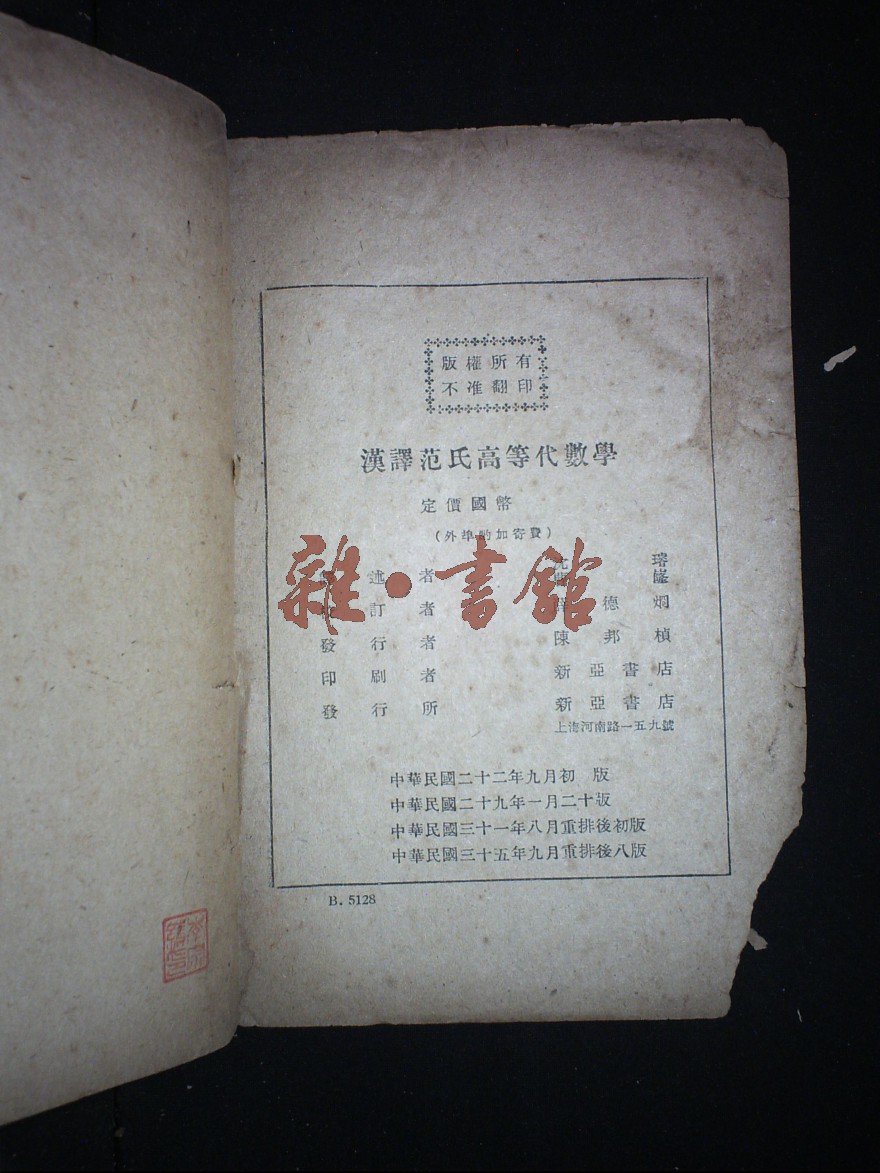 版權所有
不准翻印
漢譯范氏高等代數學
定價國幣
(外埠酌加寄費)
述者 璿
訂者 德烱
發行者 陳邦楨
印刷者 新亞書店
發行所 新亞書店
上海河南路一五九號
中華民國二十二年九月初版
中華民國二十九年一月二十版
中華民國三十一年八月重排後初版
中華民國三十五年九月重排後八版
B. 5128
雜·書館